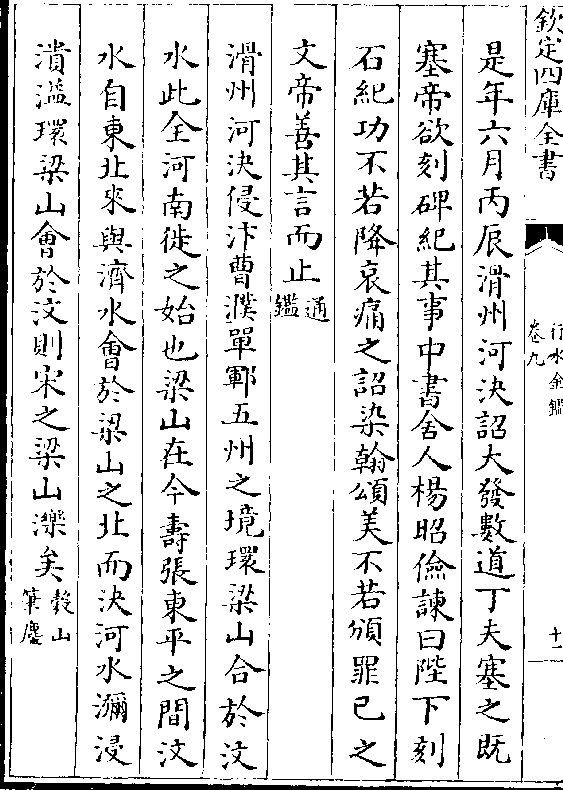 欽定四庫全書
行水金鑑
卷九
十二
是年六月丙辰滑州河決詔大發數道丁夫塞之既
塞帝欲刻碑紀其事中書舍人楊昭儉諫曰陛下刻
石紀功不若降哀痛之詔染翰頌美不若頒罪己之
文帝善其言而止通鑑
滑州河決侵汴曹濮單鄆五州之境環梁山合於汶
水此全河南徙之始也梁山在今壽張東平之間汶
水自東北來與濟水會於梁山之北而決河水瀰浸
潰溢環梁山會於汶則宋之梁山濼矣穀山筆麈